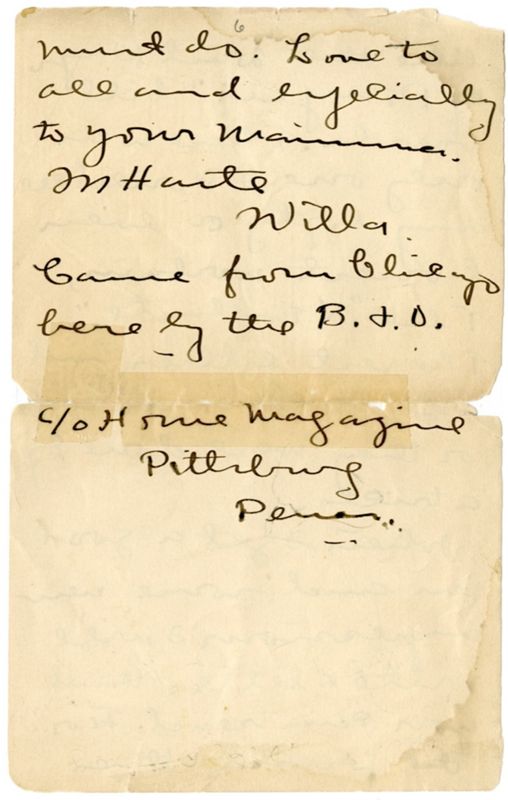 6
must do. Love to
all and especially
to your Mamma.
In Haste
Willa.
Came from Chicago
here by the B. & O.
c/o Home Magazine
Pittsburg
Penn.